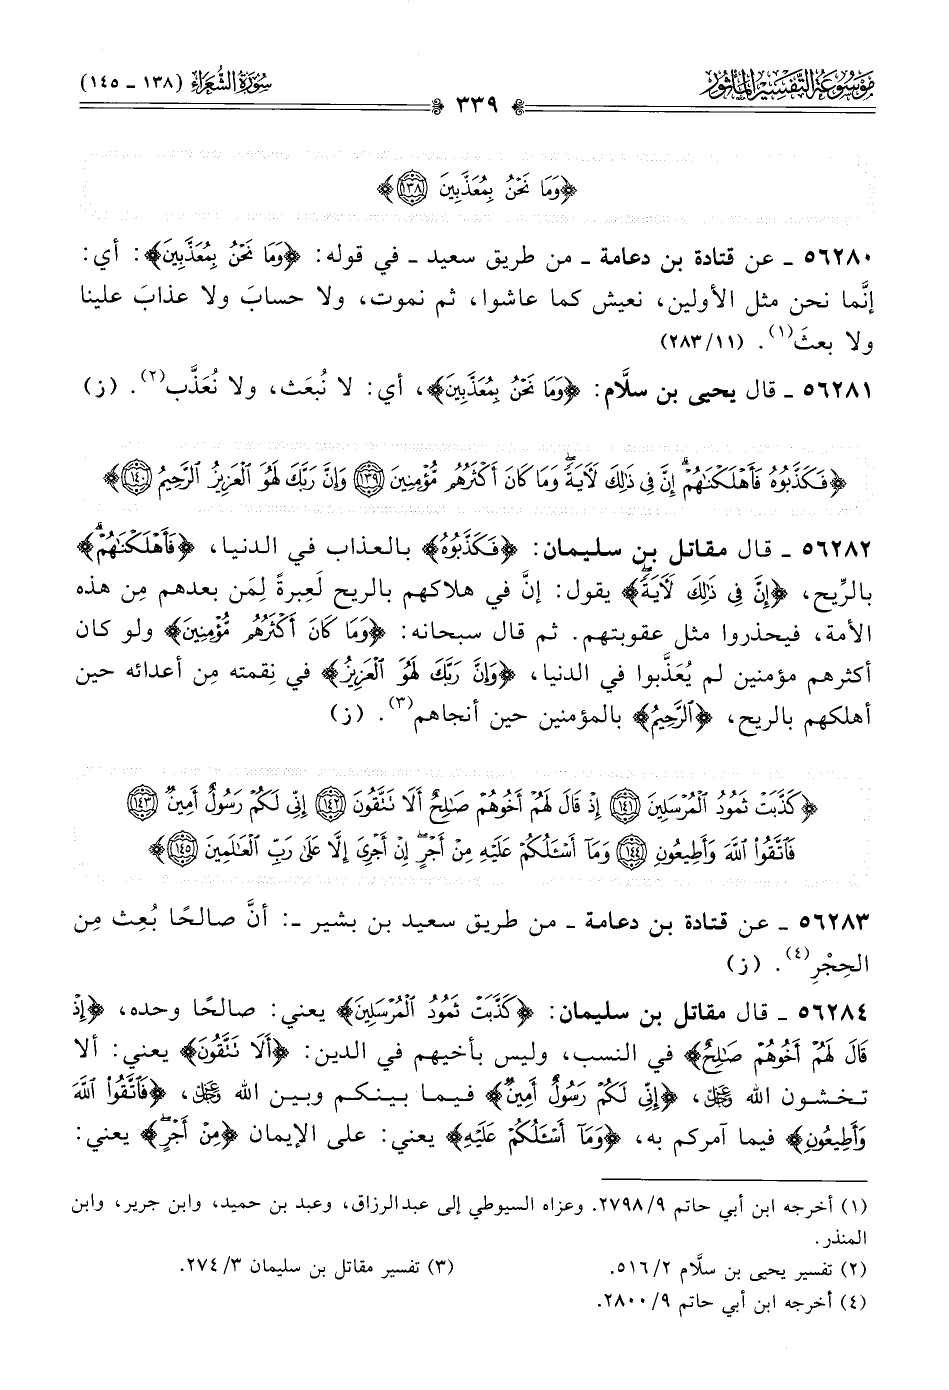 مَوْسُوعَةُ التَّفْسِيرِ المَأْثُورِ
سُورَةُ الشُّعَرَاءِ (١٣٨ - ١٤٥)
٣٣٩
﴿وَمَا نَحْنُ بِمُعَذَّبِينَ ١٣٨﴾
٥٦٢٨٠ - عن قتادة بن دعامة - من طريق سعيد - في قوله: ﴿وَمَا نَحْنُ بِمُعَذَّبِينَ﴾: أي:
إنَّما نحن مثل الأولين، نعيش كما عاشوا، ثم نموت، ولا حسابَ ولا عذابَ علينا
ولا بعثَ(١). (٢٨٣/١١)
٥٦٢٨١ - قال يحيى بن سلَّام: ﴿وَمَا نَحْنُ بِمُعَذَّبِينَ﴾، أي: لا نُبعَث، ولا نُعَذَّب(٢). (ز)
﴿فَكَذَّبُوهُ فَأَهْلَكْنَٰهُمْ ۗ إِنَّ فِى ذَٰلِكَ لَءَايَةً ۖ وَمَا كَانَ أَكْثَرُهُم مُّؤْمِنِينَ ١٣٩ وَإِنَّ رَبَّكَ لَهُوَ ٱلْعَزِيزُ ٱلرَّحِيمُ ١٤٠﴾
٥٦٢٨٢ - قال مقاتل بن سليمان: ﴿فَكَذَّبُوهُ﴾ بالعذاب في الدنيا، ﴿فَأَهْلَكْنَٰهُمْ ۗ﴾
بالرِّيح، ﴿إِنَّ فِى ذَٰلِكَ لَءَايَةً ۖ﴾ يقول: إنَّ في هلاكهم بالريح لَعِبرةً لِمَن بعدهم مِن هذه
الأمة، فيحذروا مثل عقوبتهم. ثم قال سبحانه: ﴿وَمَا كَانَ أَكْثَرُهُم مُّؤْمِنِينَ﴾ ولو كان
أكثرهم مؤمنين لم يُعَذَّبوا في الدنيا، ﴿وَإِنَّ رَبَّكَ لَهُوَ ٱلْعَزِيزُ﴾ في نِقمته مِن أعدائه حين
أهلكهم بالريح، ﴿ٱلرَّحِيمُ﴾ بالمؤمنين حين أنجاهم(٣). (ز)
﴿كَذَّبَتْ ثَمُودُ ٱلْمُرْسَلِينَ ١٤١ إِذْ قَالَ لَهُمْ أَخُوهُمْ صَٰلِحٌ أَلَا تَتَّقُونَ ١٤٢ إِنِّى لَكُمْ رَسُولٌ أَمِينٌ ١٤٣
فَٱتَّقُوا۟ ٱللَّهَ وَأَطِيعُونِ ١٤٤ وَمَآ أَسْـَٔلُكُمْ عَلَيْهِ مِنْ أَجْرٍ ۖ إِنْ أَجْرِىَ إِلَّا عَلَىٰ رَبِّ ٱلْعَٰلَمِينَ ١٤٥﴾
٥٦٢٨٣ - عن قتادة بن دعامة - من طريق سعيد بن بشير -: أنَّ صالحًا بُعِث مِن
الحِجْرِ(٤). (ز)
٥٦٢٨٤ - قال مقاتل بن سليمان: ﴿كَذَّبَتْ ثَمُودُ ٱلْمُرْسَلِينَ﴾ يعني: صالحًا وحده، ﴿إِذْ
قَالَ لَهُمْ أَخُوهُمْ صَٰلِحٌ﴾ في النسب، وليس بأخيهم في الدين: ﴿أَلَا تَتَّقُونَ﴾ يعني: ألا
تخشون الله ﷻ، ﴿إِنِّى لَكُمْ رَسُولٌ أَمِينٌ﴾ فيما بينكم وبين الله ﷻ، ﴿فَٱتَّقُوا۟ ٱللَّهَ
وَأَطِيعُونِ﴾ فيما آمركم به، ﴿وَمَآ أَسْـَٔلُكُمْ عَلَيْهِ﴾ يعني: على الإيمان ﴿مِنْ أَجْرٍ ۖ﴾ يعني:
(١) أخرجه ابن أبي حاتم ٢٧٩٨/٩. وعزاه السيوطي إلى عبدالرزاق، وعبد بن حميد، وابن جرير، وابن
المنذر.
(٢) تفسير يحيى بن سلَّام ٥١٦/٢.
(٣) تفسير مقاتل بن سليمان ٢٧٤/٣.
(٤) أخرجه ابن أبي حاتم ٢٨٠٠/٩.